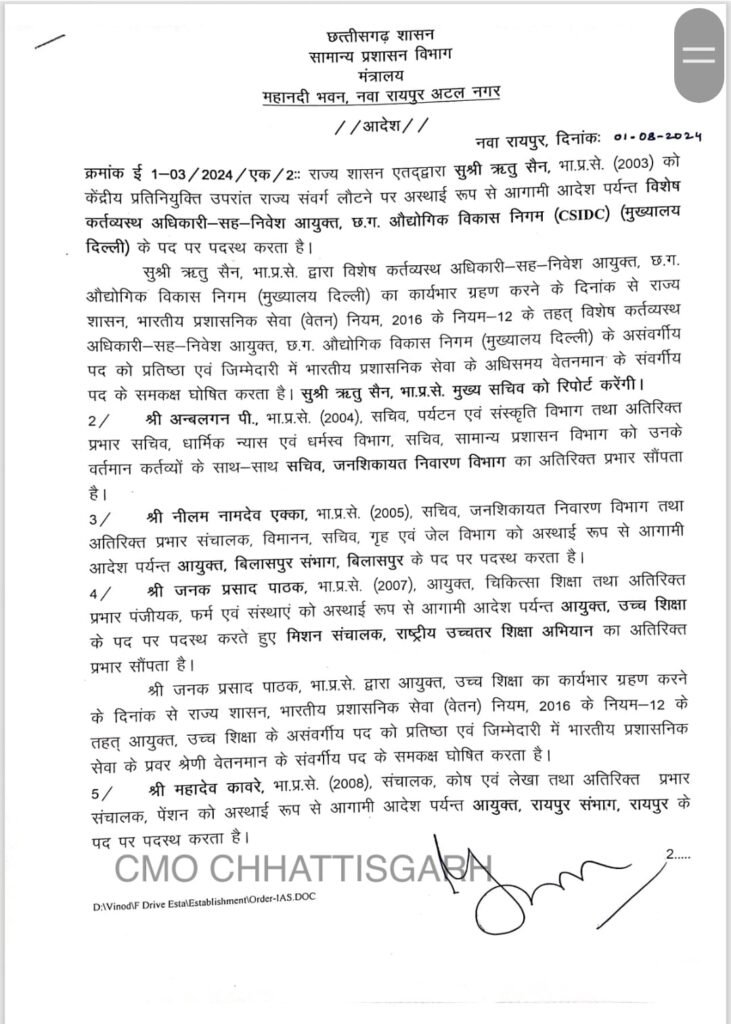 छत्तीसगढ़ शासन
सामान्य प्रशासन विभाग
मंत्रालय
महानदी भवन, नवा रायपुर अटल नगर
//आदेश//
नवा रायपुर, दिनांकः 01-08-2024
क्रमांक ई 1–03/2024/एक/2ः: राज्य शासन एतद्द्वारा सुश्री ऋतु सैन, भा.प्र.से. (2003) को
केंद्रीय प्रतिनियुक्ति उपरांत राज्य संवर्ग लौटने पर अस्थाई रूप से आगामी आदेश पर्यन्त विशेष
कर्तव्यस्थ अधिकारी–सह–निवेश आयुक्त, छ.ग. औद्योगिक विकास निगम (CSIDC) (मुख्यालय
दिल्ली) के पद पर पदस्थ करता है।
सुश्री ऋतु सैन, भा.प्र.से. द्वारा विशेष कर्तव्यस्थ अधिकारी–सह–निवेश आयुक्त, छ.ग.
औद्योगिक विकास निगम (मुख्यालय दिल्ली) का कार्यभार ग्रहण करने के दिनांक से राज्य
शासन, भारतीय प्रशासनिक सेवा (वेतन) नियम, 2016 के नियम–12 के तहत् विशेष कर्तव्यस्थ
अधिकारी–सह–निवेश आयुक्त, छ.ग. औद्योगिक विकास निगम (मुख्यालय दिल्ली) के असंवर्गीय
पद को प्रतिष्ठा एवं जिम्मेदारी में भारतीय प्रशासनिक सेवा के अधिसमय वेतनमान के संवर्गीय
पद के समकक्ष घोषित करता है। सुश्री ऋतु सैन, भा.प्र.से. मुख्य सचिव को रिपोर्ट करेंगी।
2/ श्री अन्बलगन पी., भा.प्र.से. (2004), सचिव, पर्यटन एवं संस्कृति विभाग तथा अतिरिक्त
प्रभार सचिव, धार्मिक न्यास एवं धर्मस्व विभाग, सचिव, सामान्य प्रशासन विभाग को उनके
वर्तमान कर्तव्यों के साथ–साथ सचिव, जनशिकायत निवारण विभाग का अतिरिक्त प्रभार सौंपता
है।
3/ श्री नीलम नामदेव एक्का, भा.प्र.से. (2005), सचिव, जनशिकायत निवारण विभाग तथा
अतिरिक्त प्रभार संचालक, विमानन, सचिव, गृह एवं जेल विभाग को अस्थाई रूप से आगामी
आदेश पर्यन्त आयुक्त, बिलासपुर संभाग, बिलासपुर के पद पर पदस्थ करता है।
4/ श्री जनक प्रसाद पाठक, भा.प्र.से. (2007), आयुक्त, चिकित्सा शिक्षा तथा अतिरिक्त
प्रभार पंजीयक, फर्म एवं संस्थाएं को अस्थाई रूप से आगामी आदेश पर्यन्त आयुक्त, उच्च शिक्षा
के पद पर पदस्थ करते हुए मिशन संचालक, राष्ट्रीय उच्चतर शिक्षा अभियान का अतिरिक्त
प्रभार सौंपता है।
श्री जनक प्रसाद पाठक, भा.प्र.से. द्वारा आयुक्त, उच्च शिक्षा का कार्यभार ग्रहण करने
के दिनांक से राज्य शासन, भारतीय प्रशासनिक सेवा (वेतन) नियम, 2016 के नियम–12 के
तहत् आयुक्त, उच्च शिक्षा के असंवर्गीय पद को प्रतिष्ठा एवं जिम्मेदारी में भारतीय प्रशासनिक
सेवा के प्रवर श्रेणी वेतनमान के संवर्गीय पद के समकक्ष घोषित करता है।
5/ श्री महादेव कावरे, भा.प्र.से. (2008), संचालक, कोष एवं लेखा तथा अतिरिक्त प्रभार
संचालक, पेंशन को अस्थाई रूप से आगामी आदेश पर्यन्त आयुक्त, रायपुर संभाग, रायपुर के
पद पर पदस्थ करता है।
CMO CHHATTISGARH
2.....
D:\Vinod\F Drive Esta\Establishment\Order-IAS.DOC